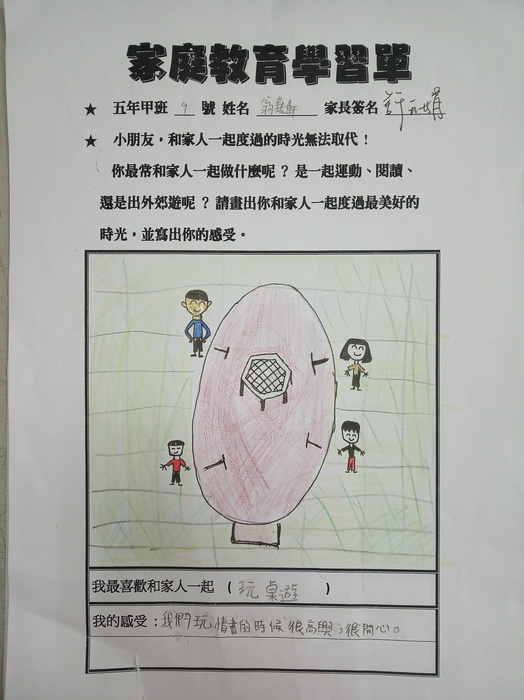 家庭教育學習單
★ 五年甲班 9 號 姓名 家長簽名
★ 小朋友，和家人一起度過的時光無法取代！
你最常和家人一起做什麼呢？是一起運動、閱讀、
還是出外郊遊呢？請畫出你和家人一起度過最美好的
時光，並寫出你的感受。
我最喜歡和家人一起（玩桌遊）
我的感受：我們玩情書的時候很高興，很開心。